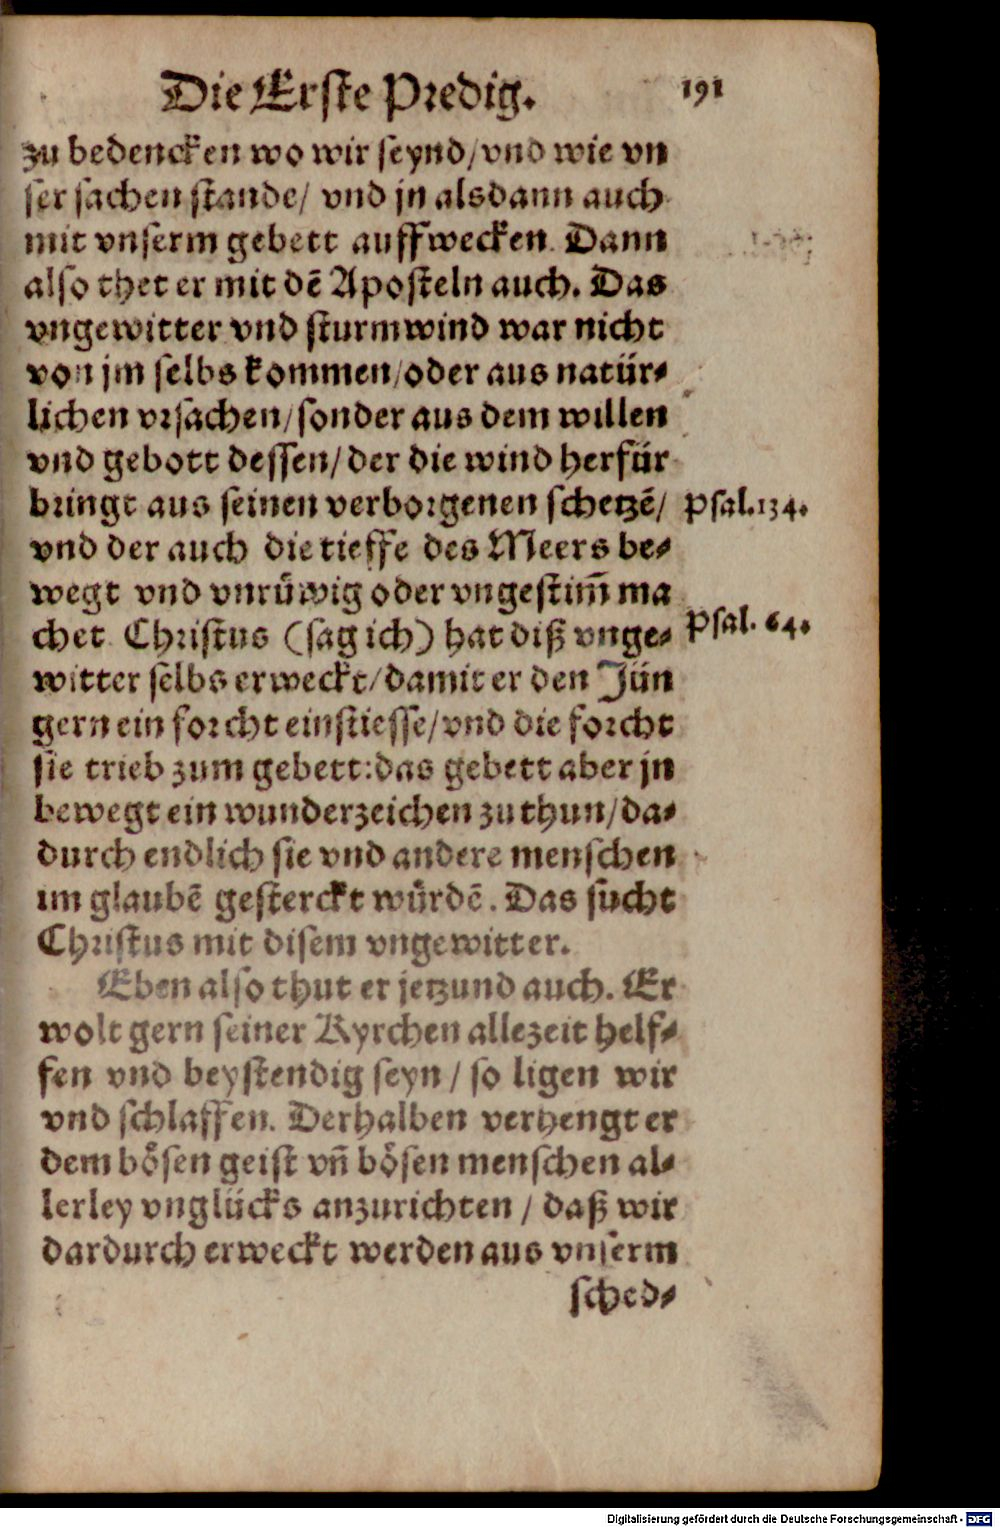 Die Erste Predig. 191
zu bedencken wo wir seynd/vnd wie vn
ser sachen stande/ vnd jn alsdann auch
mit vnserm gebett auffwecken. Dann
also thet er mit dē Aposteln auch. Das
vngewitter vnd sturmwind war nicht
von jm selbs kommen/oder aus natür-
lichen vrsachen/sonder aus dem willen
vnd gebott dessen/der die wind herfür
bringt aus seinen verborgenen schetzē/ Psal.134.
vnd der auch die tieffe des Meers be-
wegt vnd vnrüwig oder vngestim̄ ma
chet Christus (sag ich) hat diß vnge- Psal. 64.
witter selbs erweckt/damit er den Jün
gern ein forcht einstiesse/vnd die forcht
sie trieb zum gebett:das gebett aber jn
bewegt ein wunderzeichen zu thun/da-
durch endlich sie vnd andere menschen
im glaubē gesterckt wůrdē. Das sůcht
Christus mit disem vngewitter.
Eben also thut er jetzund auch. Er
wolt gern seiner Kyrchen allezeit helf-
fen vnd beystendig seyn / so ligen wir
vnd schlaffen. Derhalben verhengt er
dem bősen geist vñ bősen menschen al-
lerley vnglücks anzurichten / daß wir
dardurch erweckt werden aus vnserm
sched-
Digitalisierung gefördert durch die Deutsche Forschungsgemeinschaft - DFG